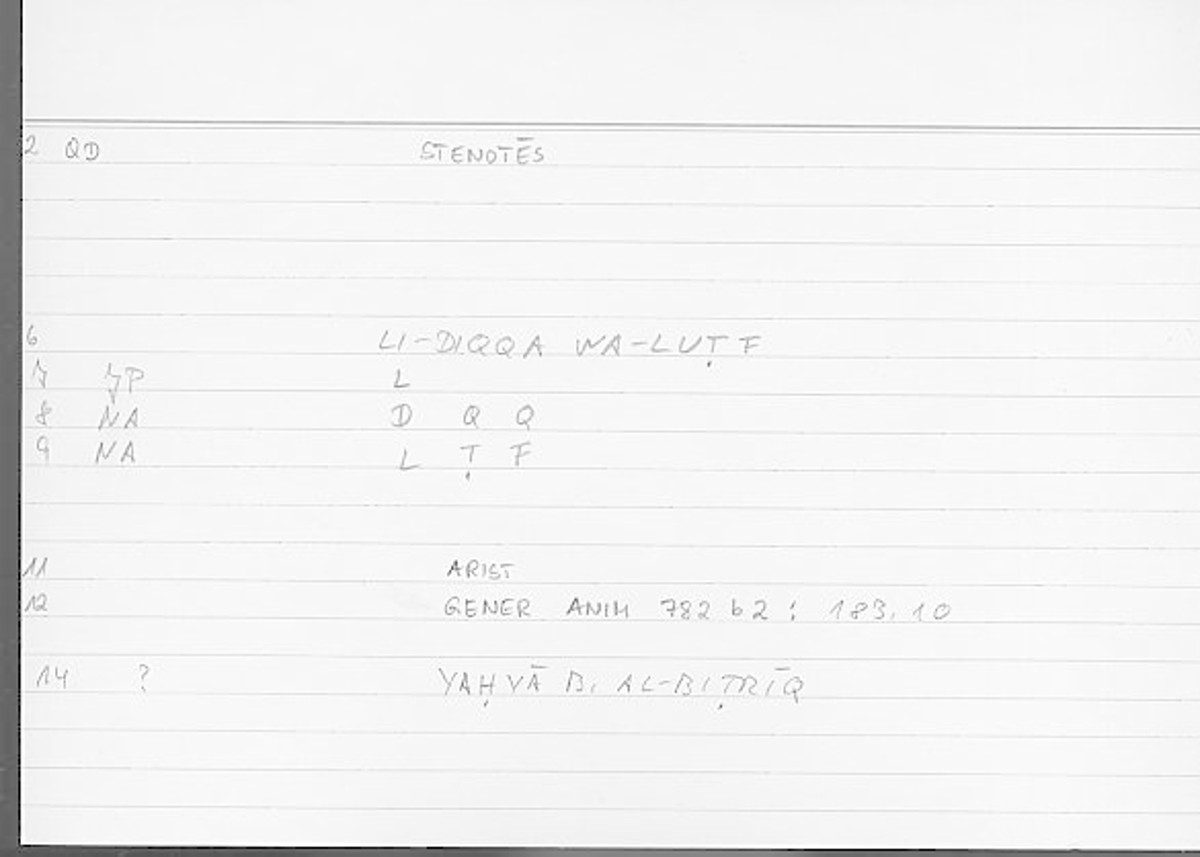 2 QD STENOTĒS
6 LI-DIQQA WA-LUṬF
7 JP L
8 NA D Q Q
9 NA L Ṭ F
11 ARIST
12 GENER ANIM 782 b 2 : 183,10
14 ? YAḤYĀ B. AL-BIṬRĪQ